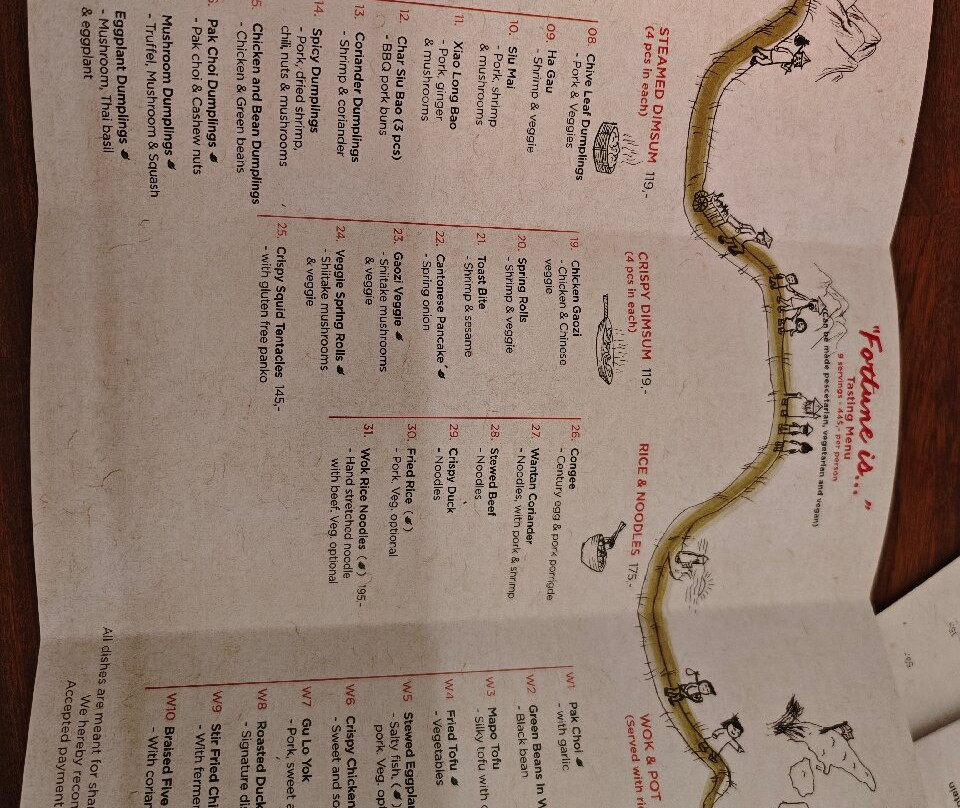 "Fortune is..."
Tasting Menu
9 servings - 445,- per person
(Can be made pescetarian, vegetarian and vegan)
STEAMED DIMSUM 119,-
(4 pcs in each)
08. Chive Leaf Dumplings
- Pork & Veggies
09. Ha Gau
- Shrimp & veggie
10. Siu Mai
- Pork, shrimp
& mushrooms
11. Xiao Long Bao
- Pork, ginger
& mushrooms
12. Char Siu Bao (3 pcs)
- BBQ pork buns
13. Coriander Dumplings
- Shrimp & coriander
14. Spicy Dumplings
- Pork, dried shrimp,
chili, nuts & mushrooms
5. Chicken and Bean Dumplings
- Chicken & Green beans
Pak Choi Dumplings
- Pak choi & Cashew nuts
Mushroom Dumplings
- Truffel, Mushroom & Squash
Eggplant Dumplings
- Mushroom, Thai basil
& eggplant
CRISPY DIMSUM 119,-
(4 pcs in each)
19. Chicken Gaozi
- Chicken & Chinese
veggie
20. Spring Rolls
- Shrimp & veggie
21 Toast Bite
- Shrimp & sesame
22. Cantonese Pancake'
- Spring onion
23. Gaozi Veggie
- Shiitake mushrooms
& veggie
24. Veggie Spring Rolls
- Shiitake mushrooms
& veggie
25. Crispy Squid Tentacles 145,-
- with gluten free panko
RICE & NOODLES 175,-
26. Congee
- Century egg & pork porrigde
27. Wantan Coriander
- Noodles, with pork & shrimp
28. Stewed Beef
- Noodles
29. Crispy Duck
- Noodles
30. Fried Rice ( )
- Pork, Veg. optional
31. Wok Rice Noodles ( ) 195,-
- Hand stretched noodle
with beef, Veg. optional
WOK & POT
(Served with ri
W1 Pak Choi
- with garlic
W2 Green Beans In W
- Black bean
W3 Mapo Tofu
- Silky tofu with
W4 Fried Tofu
- Vegetables
W5 Stewed Eggpla
- Salty fish, ( )
pork, Veg. op
W6 Crispy Chicken
- Sweet and so
W7 Gu Lo Yok
- Pork, sweet a
W8 Roasted Duck
- Signature dis
W9 Stir Fried Chi
- With fermen
W10 Braised Five
- With corian
All dishes are meant for shar
We hereby recon
Accepted payment